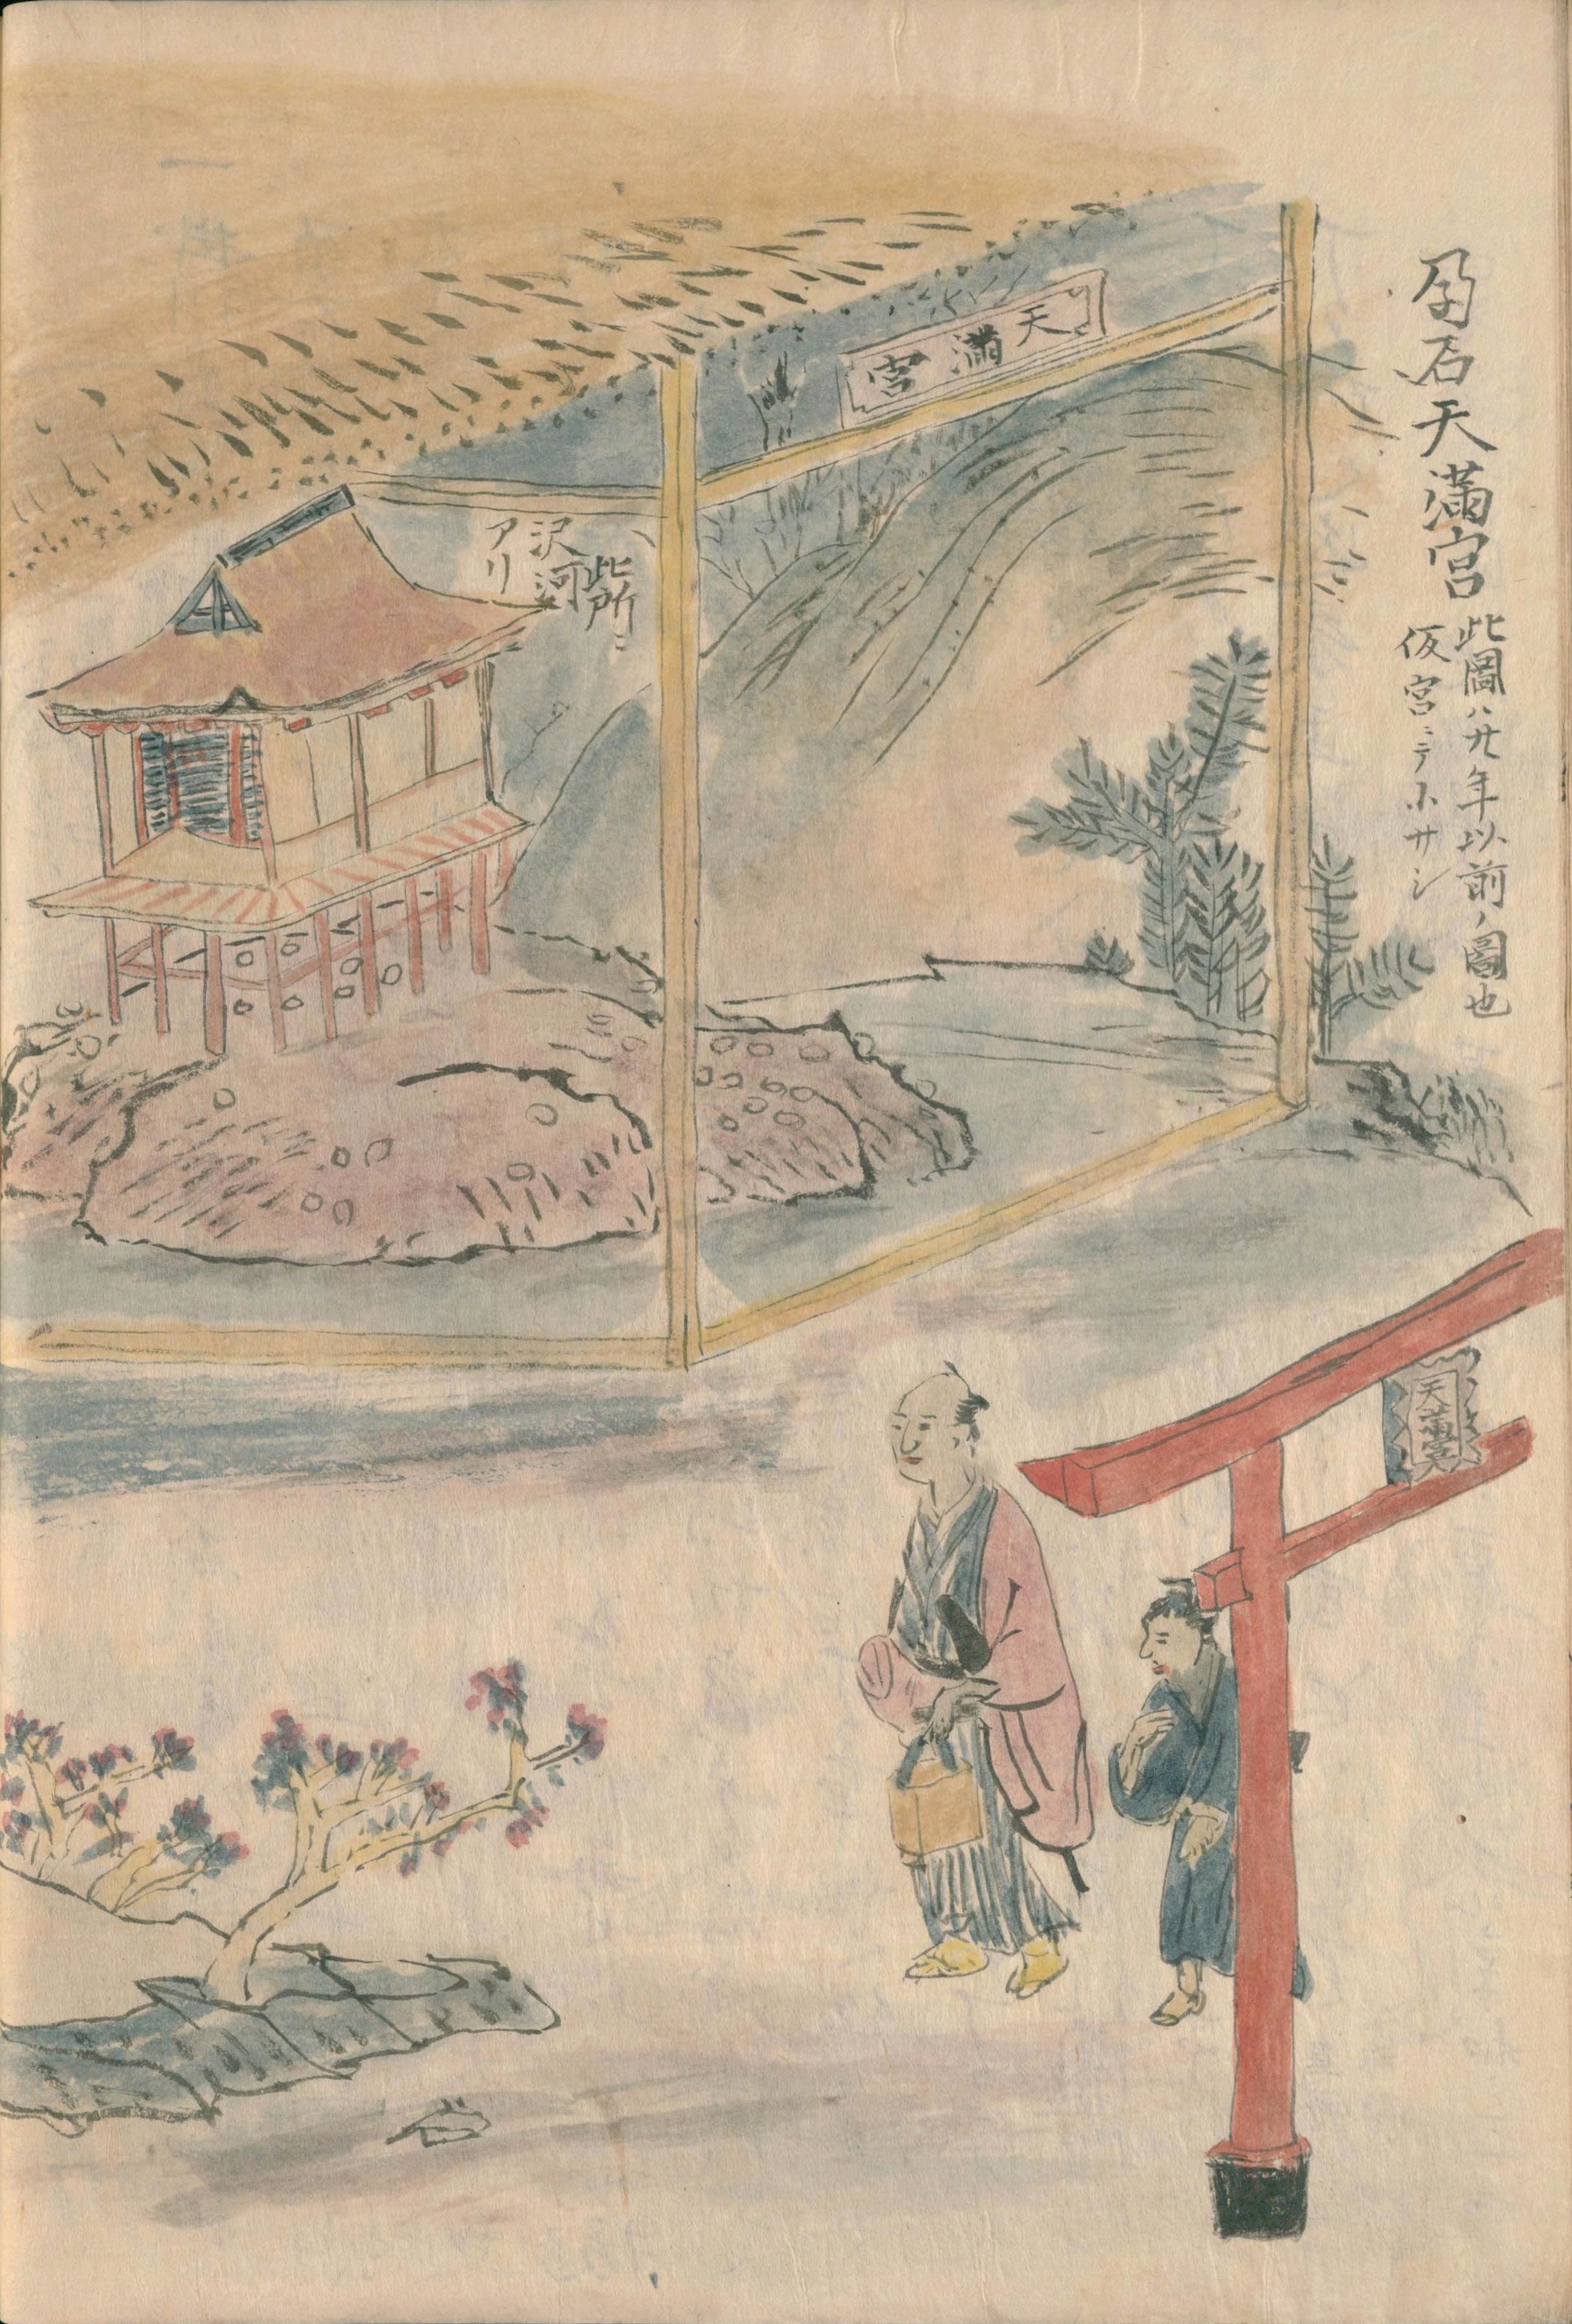 孕石天満宮
此圖ハ廿年以前ノ圖也
仮宮ニテ小サシ
天満宮
此所ニ
沢河
アリ
天満宮